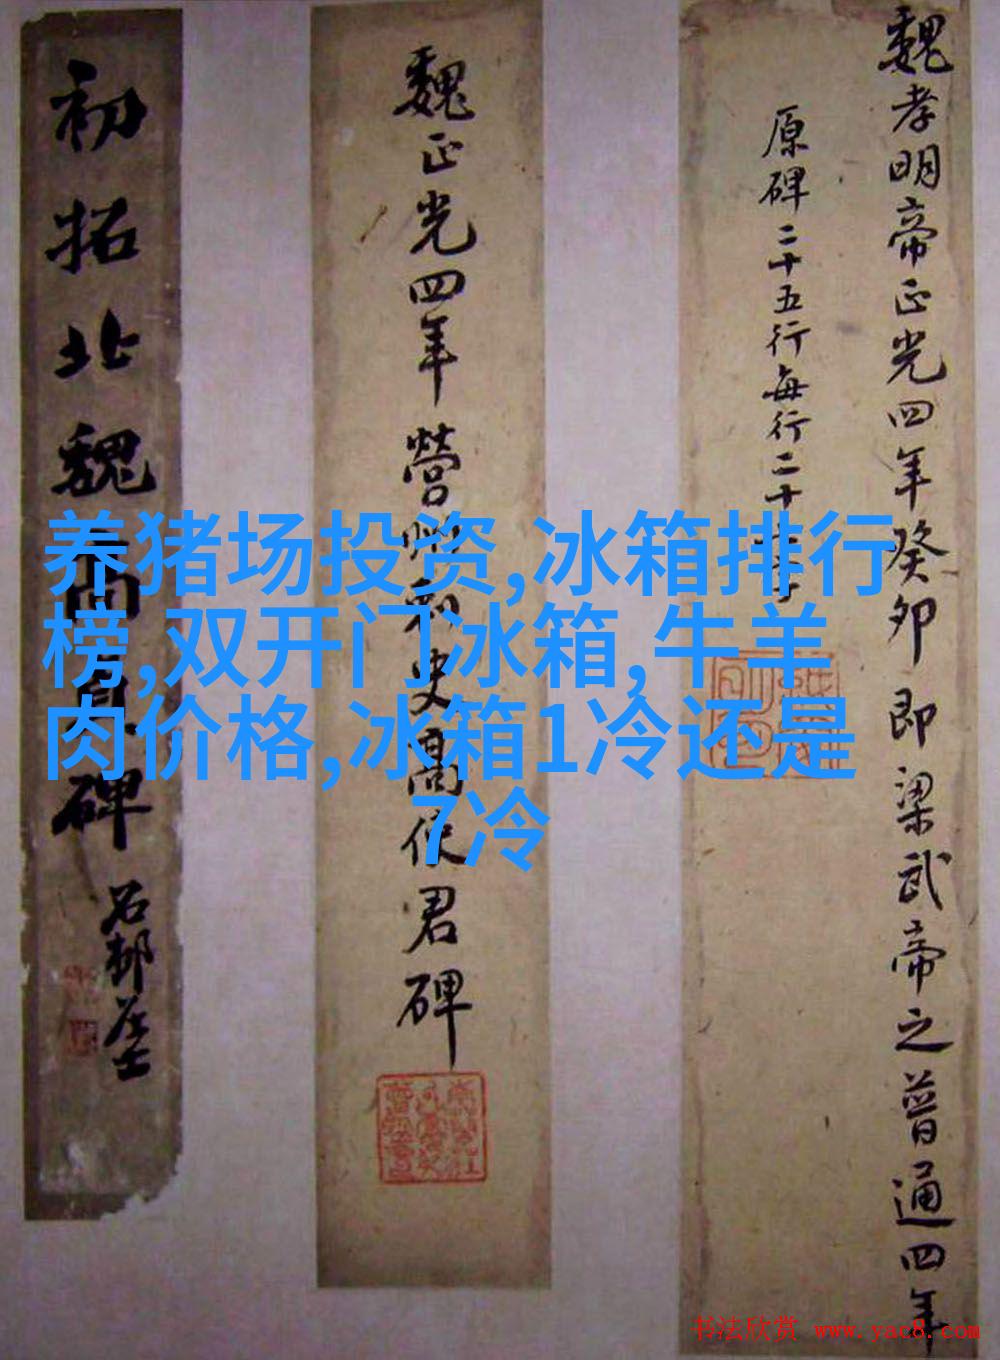 魏孝明帝正光四年癸卯即梁武帝之普通四年
原碑二十五行每行二十
魏正光四年營州刺史高使君碑
初拓北魏高貞碑
石邨居士
养猪场投资,冰箱排行
榜,双开门冰箱,牛羊
肉价格,冰箱1冷还是
7冷
书法欣赏 www.yac8.com